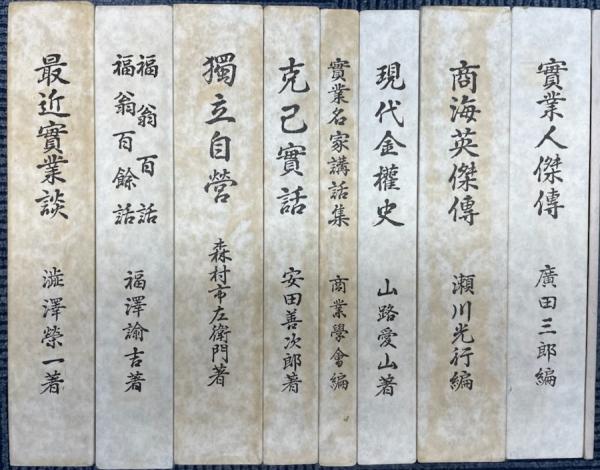 實業人傑傳
廣田三郎編
商海英傑傳
瀬川光行編
現代金權史
山路愛山著
實業名家講話集
商業學會編
克己實話
安田善次郎著
獨立自營
森村市左衛門著
福翁百話
福翁百餘話
福澤諭吉著
最近實業談
澁澤榮一著